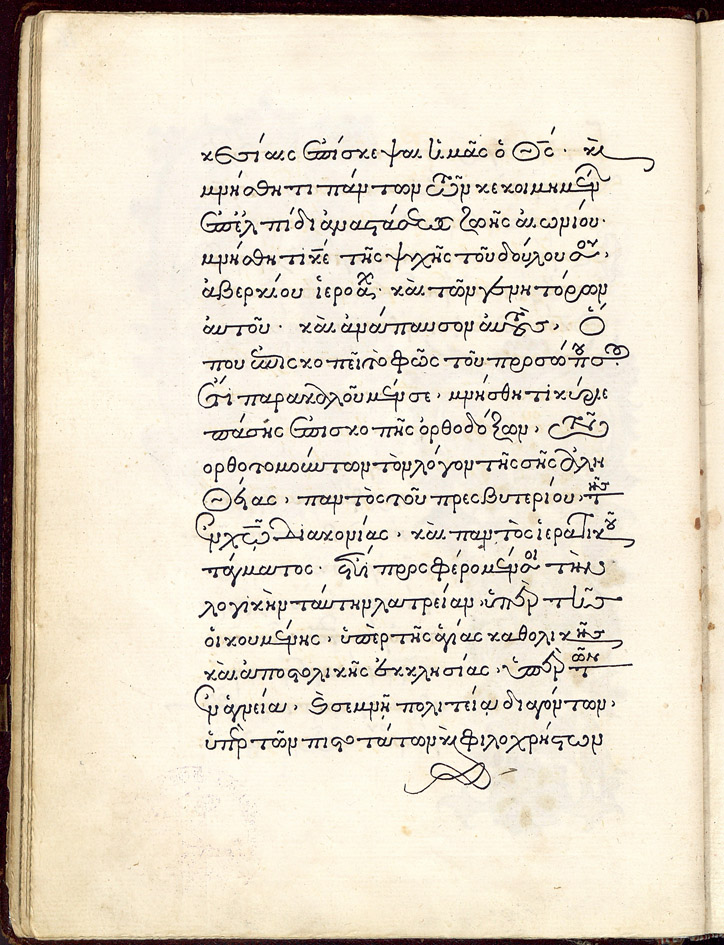 κεσίαις ἐπίσκεψαι ὑμᾶς ὁ Θς̄· κὶ
μνήσθητι πάντων τῶν κεκοιμημένων
ἐπ' ἐλπίδι ἀναστάσεως ζωῆς αἰωνίου·
μνήσθητι κε̄ τῆς ψυχῆς τοῦ δούλου σου,
ἀβερκίου ἱερομονάχου· καὶ τῶν γεννητόρων
αὐτοῦ· καὶ ἀνάπαυσον αὐτούς, ὅ
που ἐπισκοπεῖ τὸ φῶς τοῦ προσώπου σου
ἔτι παρακαλοῦμέν σε, μνήσθητι κύριε
πάσης ἐπισκοπῆς ὀρθοδόξων, τῶν
ὀρθοτομούντων τὸν λόγον τῆς σῆς ἀλη
θείας, παντὸς τοῦ πρεσβυτερίου, τῆς
ἐν χω̄ διακονίας, καὶ παντὸς ἱερατικοῦ
τάγματος· ἔτι προσφέρομέν σοι τὴν
λογικὴν ταύτην λατρείαν, ὑπὲρ τῆς
οἰκουμένης, ὑπὲρ τῆς ἁγίας καθολικῆς
καὶ ἀποστολικῆς ἐκκλησίας, ὑπὲρ τῶν
ἐν ἁγνείᾳ, κὶ σεμνῇ πολιτείᾳ διαγόντων,
ὑπὲρ τῶν πιστοτάτων κὶ φιλοχρήστων